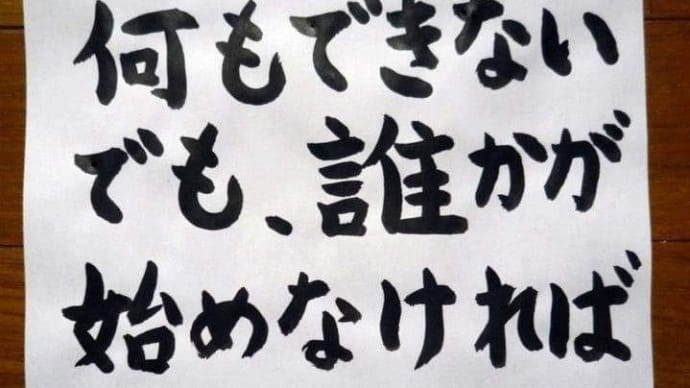 何もできない
でも、誰かが
始めなければ